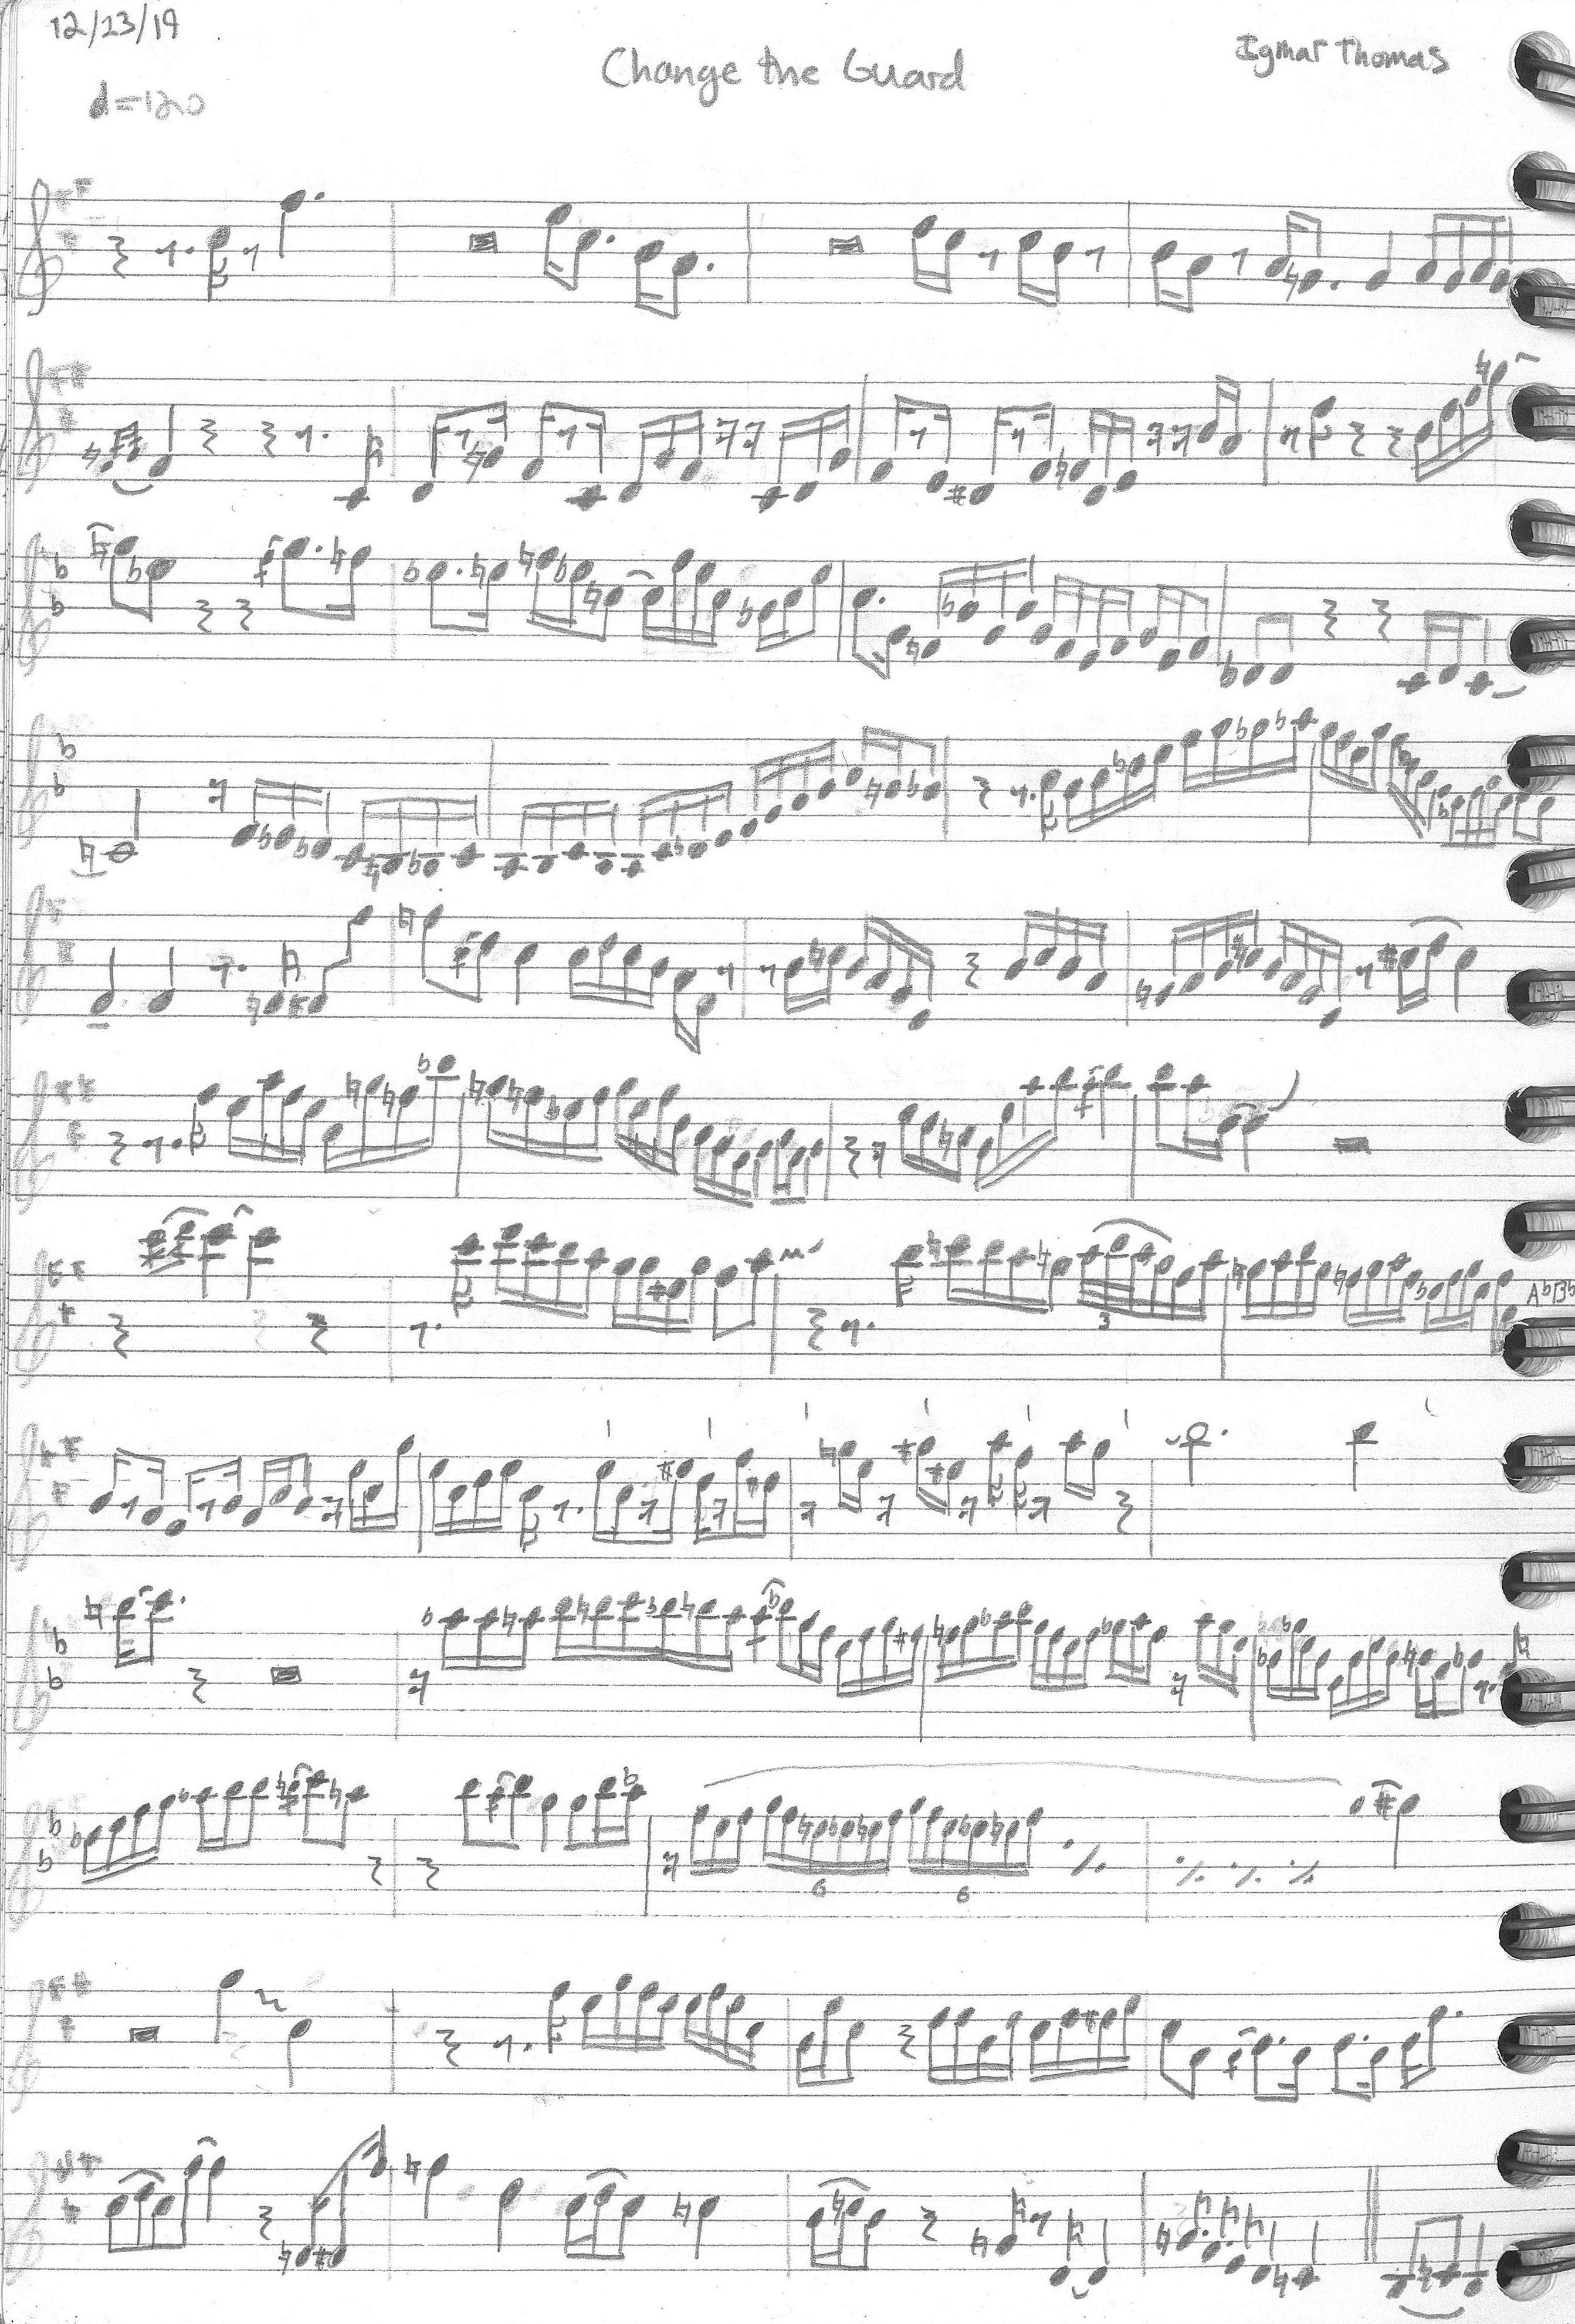 12/23/19
Change the Guard
Igmar Thomas
♩=120
3
6
6